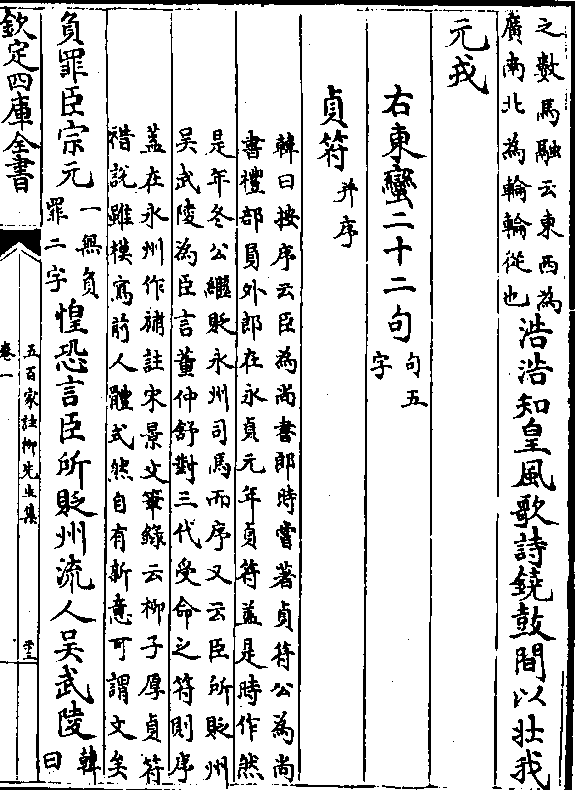 之數馬融云東西為
廣南北為輪輪從也
浩浩知皇風歌詩鐃鼓間以壯我
元戎
右東蠻二十二句
句五
字
貞符
并序
韓曰按序云臣為尚書郎時嘗著貞符公為尚
書禮部員外郎在永貞元年貞符蓋是時作然
是年冬公繼貶永州司馬而序又云臣所貶州
吳武陵為臣言董仲舒對三代受命之符則序
蓋在永州作補註宋景文筆錄云柳子厚貞符
襍説雖模寫前人體式然自有新意可謂文矣
負罪臣宗元
一無負
罪二字
惶恐言臣所貶州流人吳武陵
韓
曰
欽定四庫全書
卷一
五百家註柳先生集